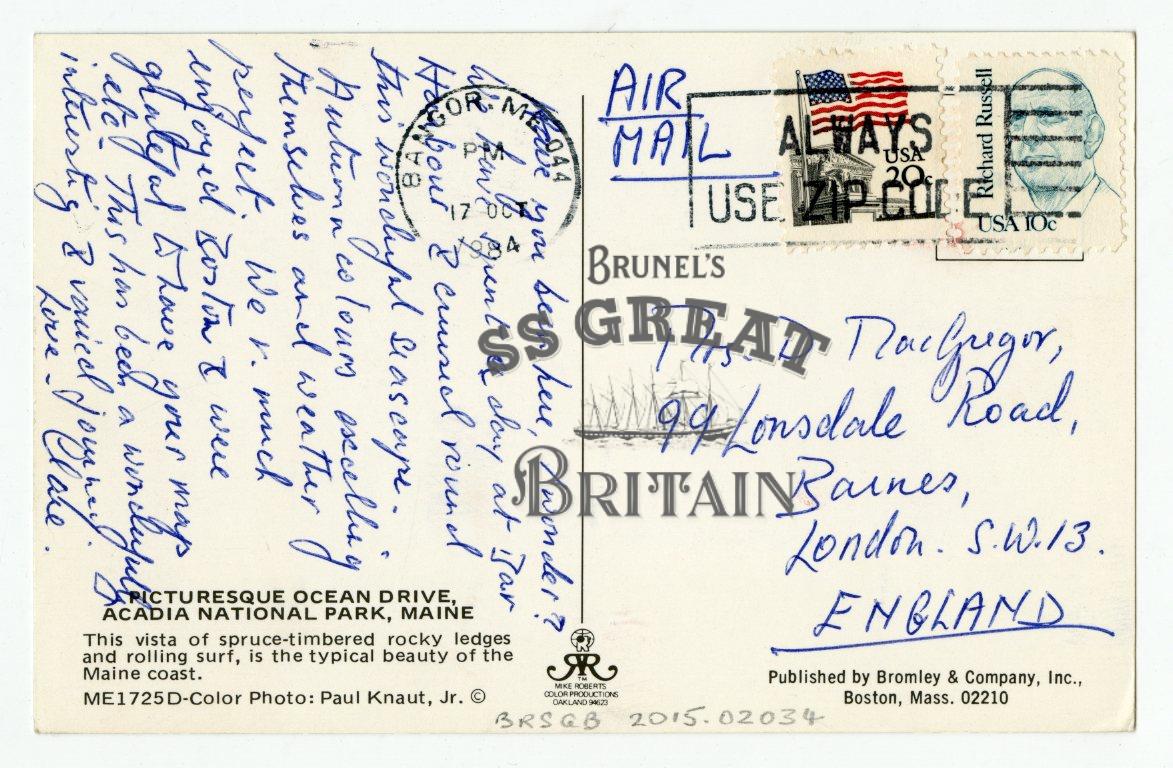 Have you been here, I wonder?
We have spent a day at Bar
Harbour & cruised round
this wonderful seascape.
Autumn colours excelling
themselves and weather
perfect. We v. much
enjoyed Boston & were
grateful to have your maps
etc. This has been a wonderfully
interesting & varied journey.
Love - Clare.
PICTURESQUE OCEAN DRIVE,
ACADIA NATIONAL PARK, MAINE
This vista of spruce-timbered rocky ledges
and rolling surf, is the typical beauty of the
Maine coast.
ME1725D-Color Photo: Paul Knaut, Jr. ©
MIKE ROBERTS
COLOR PRODUCTIONS
OAKLAND 94623
TM
BRSGB 2015.02034
BANGOR, ME 044
PM
17 OCT
1984
AIR
MAIL
ALWAYS
USE ZIP CODE
USA
20c
Richard Russell
USA 10c
BRUNEL'S
SS GREAT
BRITAIN
Mrs D MacGregor,
99 Lonsdale Road,
Barnes,
London. S.W.13.
ENGLAND
Published by Bromley & Company, Inc.,
Boston, Mass. 02210